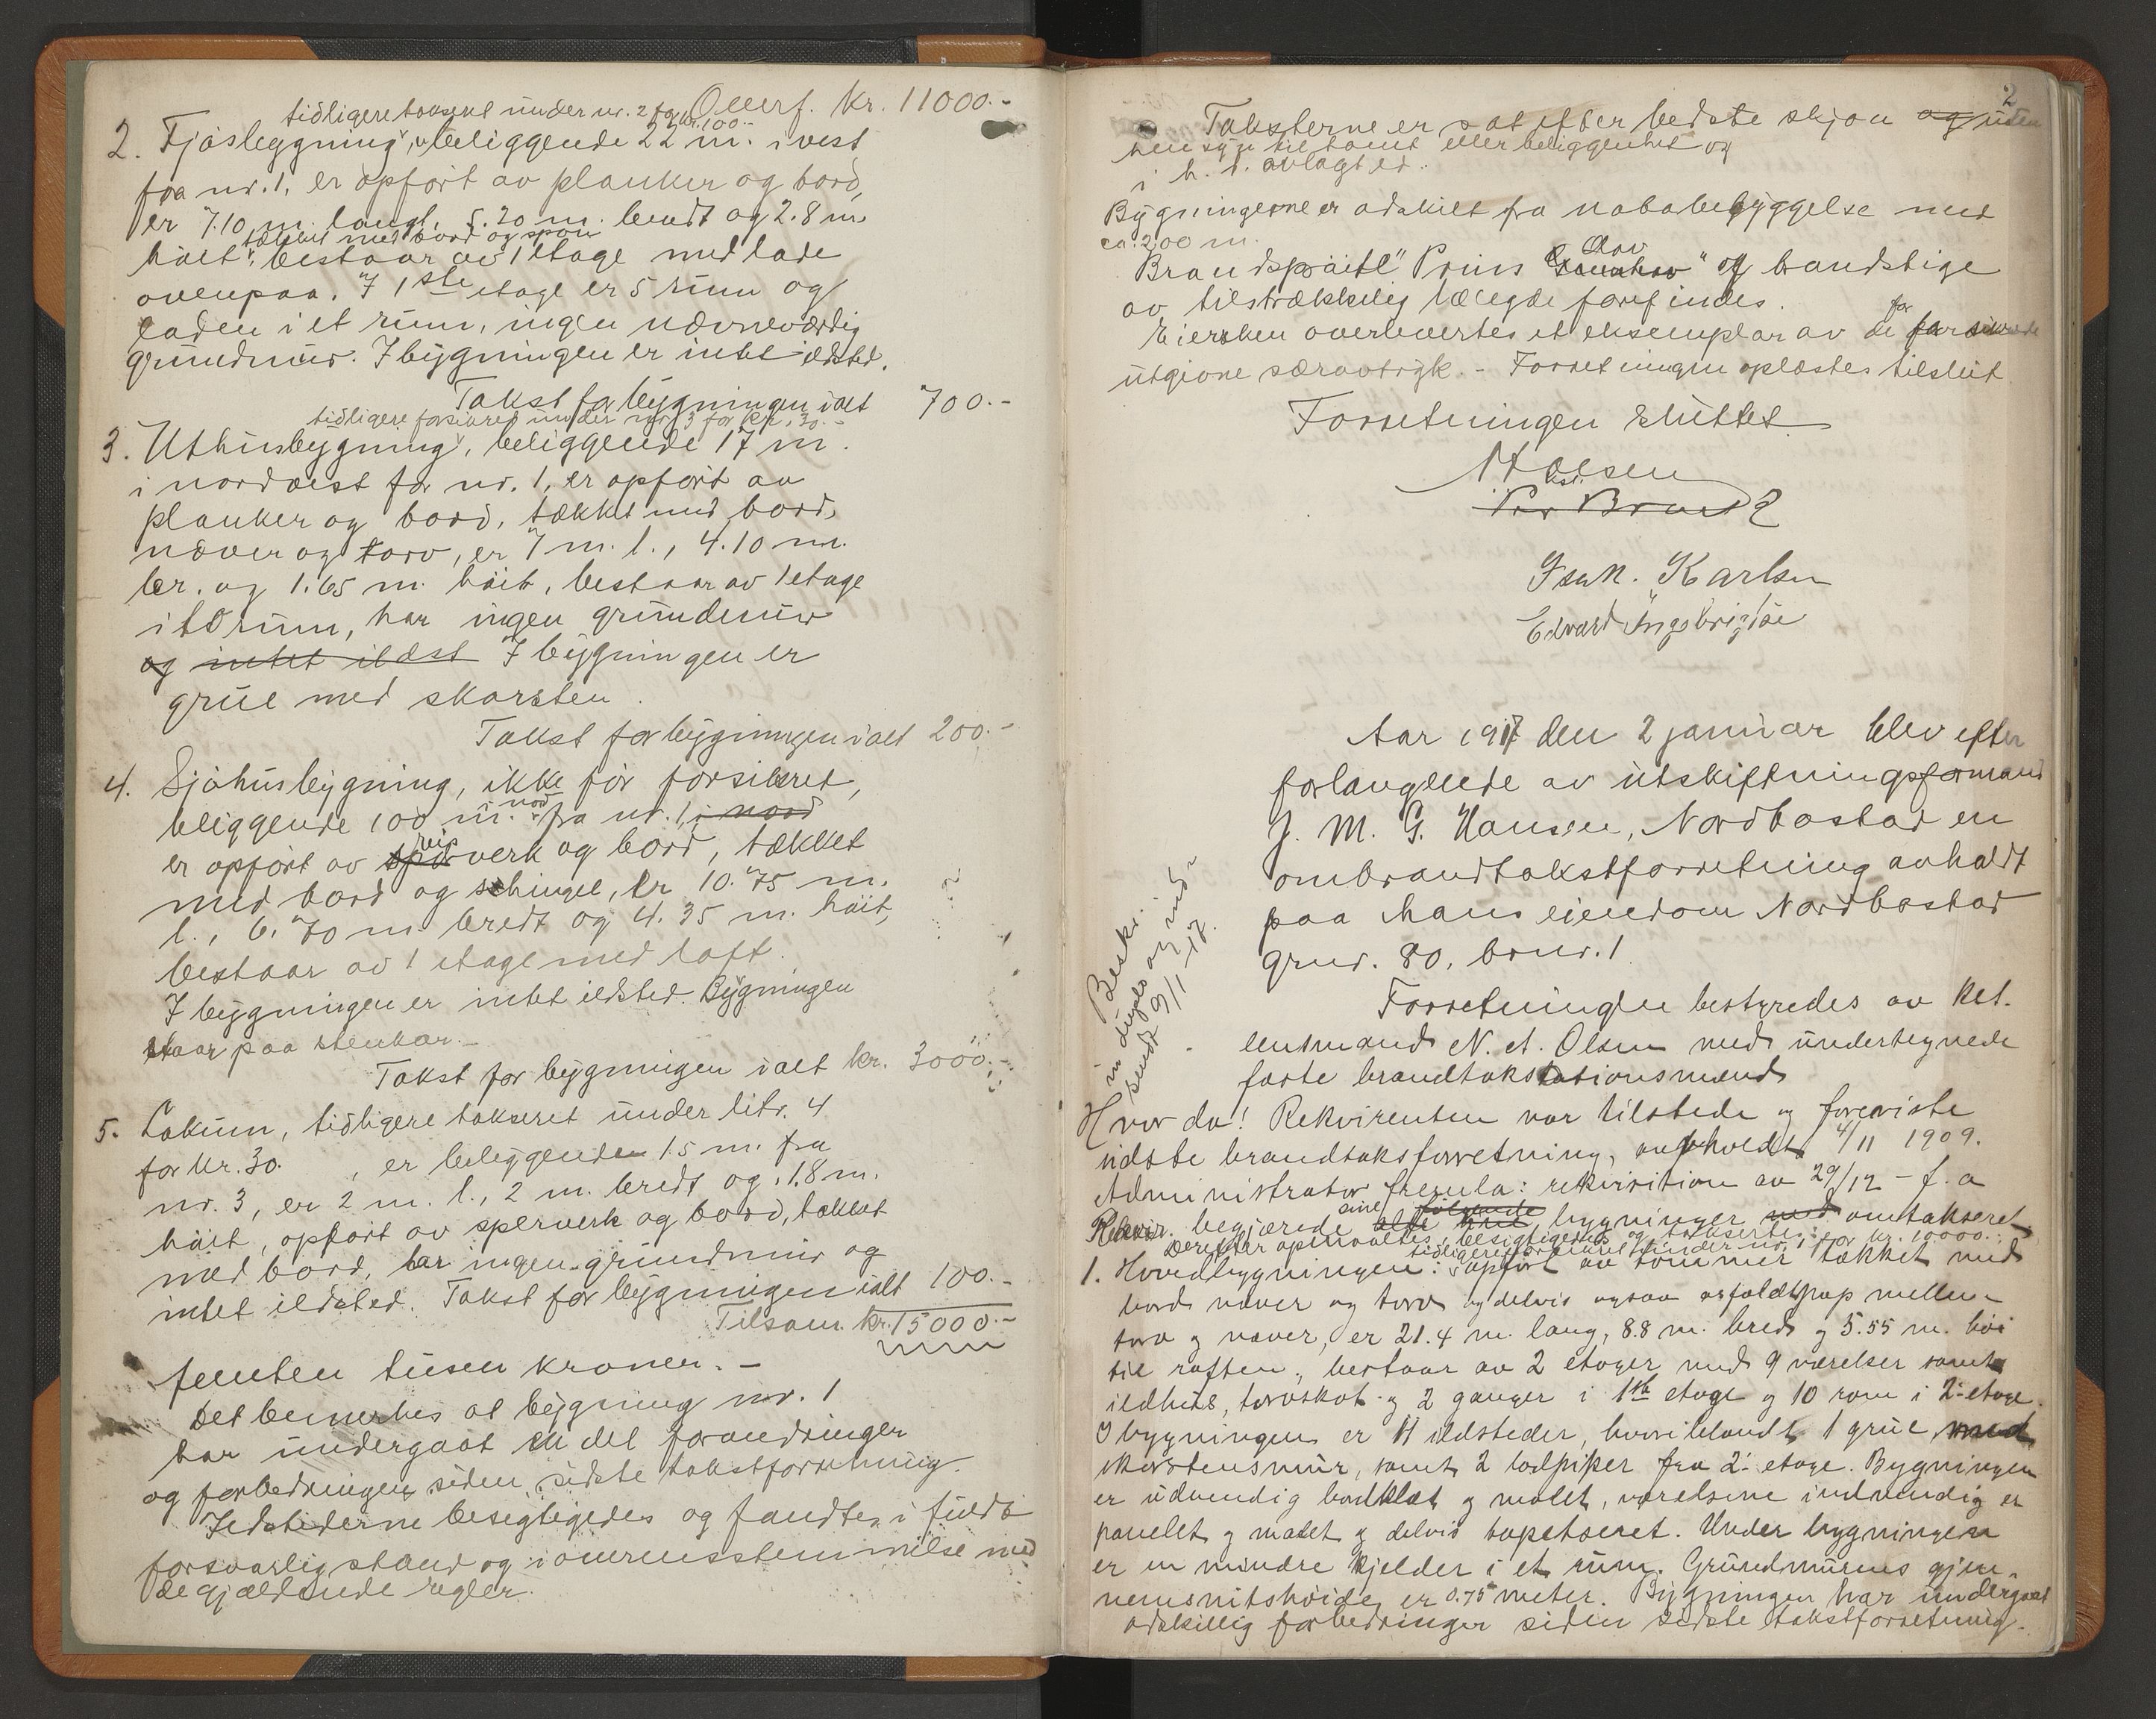 Overf. Kr. 11000.-
tidligere taksert under nr. 2 for kr. 100.-
2. Fjøsbygning, beliggende 22 m. i vest
fra nr. 1, er opført av planker og bord,
er 7.10 m. langt, 5.20 m. bredt og 2.8 m.
tækket med bord og spon
høit, bestaar av 1 etage med lade
ovenpaa. I 1ste etage er 5 rum og
laden i et rum, ingen nævneværdig
grundmur. I bygningen er intet ildsted.
Takst for bygningen ialt 700.-
tidligere forsikret under nr. 3 for kr. 30.-
3. Uthusbygning, beliggende 17 m.
i nordvest for nr. 1, er opført av
planker og bord, tækket med bord,
næver og torv, er 7 m. l., 4.10 m.
br. og 1.65 m. høit, bestaar av 1 etage
i et rum, har ingen grundmur
og intet ildsted I bygningen er
grue med skorsten.
Takst for bygningen ialt 200.-
4. Sjøhusbygning, ikke før forsikret,
beliggende 100 m. nord fra nr. 1, i nord
er opført av reisverk og bord, tækket
med bord og schingel, er 10.75 m.
l., 6.70 m. bredt og 4.35 m. høit,
bestaar av 1 etage med loft.
I bygningen er intet ildsted. Bygningen
staar paa stenkar.-
Takst for bygningen ialt kr. 3000.-
5. Lokum, tidligere takseret under litr. 4
for kr. 30. , er beliggende 15 m. fra
nr. 3, er 2 m. l., 2 m. bredt og 1.8 m.
høit, opført av sperverk og bord, tækket
med bord, har ingen grundmur og
intet ildsted. Takst for bygningen ialt 100.-
Tilsam. kr. 15000.-
femten tusen kroner.-
Det bemerkes at bygning nr. 1
har undergaat en del forandringer
og forbedringer siden sidste takstforretning.
Ildstederne besigtigedes og fandtes i fuldt
forsvarlig stand og i overensstemmelse med
de gjældende regler.
2
Taksterne er sat efter bedste skjøn og uten
hensyn til tomt eller beliggenhet og
i h. t. avlagt ed.
Bygningerne er adskilt fra nabobebyggelse med
ca. 200 m.
Brandsprøite "Prins Olav" og brandstige
av tilstrækkelig længde forefindes.
Eiersken overlevertes et eksemplar av de for
utgivne særavtryk.- Forretningen oplæstes tilslut
Forretningen sluttet
N Olsen
Per Brandt
Isak. Karlsen
Edvard Ingebrigtse
Aar 1917 den 2 januar blev efter
forlangende av utskiftningsformand
J. M. G. Hansen, Nordbostad en
ombrandtakstforretning avholdt
paa hans eiendom Nordbostad
gnr. 80, brnr. 1
Forretningen bestyredes av kst.
lensmand N. A. Olsen med undertegnede
faste brandtakstationsmænd
Beskr.
in duplo og indb.
sendt 9/1-17.
Hvor da! Rekvirenten var tilstede og foreviste
sidste brandtaksforretning, avholdt 4/11 1909.
Administrator fremla: rekvisition av 29/12 - f. a
Rekvir. begjærede sine bygninger omtakseret
Derefter opmaaltes, besigtigedes og taksertes:
tidligere forsikret under nr. 1 for kr. 10000.-
1. Hovedbygningen: opført av tømmer tækket med
bord næver og torv og delvis ogsaa asfaltpap mellem
torv og næver, er 21.4 m. lang, 8.8 m. bred og 5.55 m. høi
til raften, bestaar av 2 etager med 9 værelser samt
ildhus, torvskot og 2 ganger i 1ste etage og 10 rom i 2. etage.
I bygningen er 11 ildsteder, hvoriblandt 1 grue med
skorstensmur, samt 2 lodpiper fra 2. etage. Bygningen
er udvendig bordklæt og malet, værelsene indvendig er
panelet og malet og delvis tapetseret. Under bygningen
er en mindre kjelder i et rum. Grundmurens gjen-
nemsnitshøide er 0.75 meter. Bygningen har undergaat
adskillig forbedringer siden sidste takstforretning.